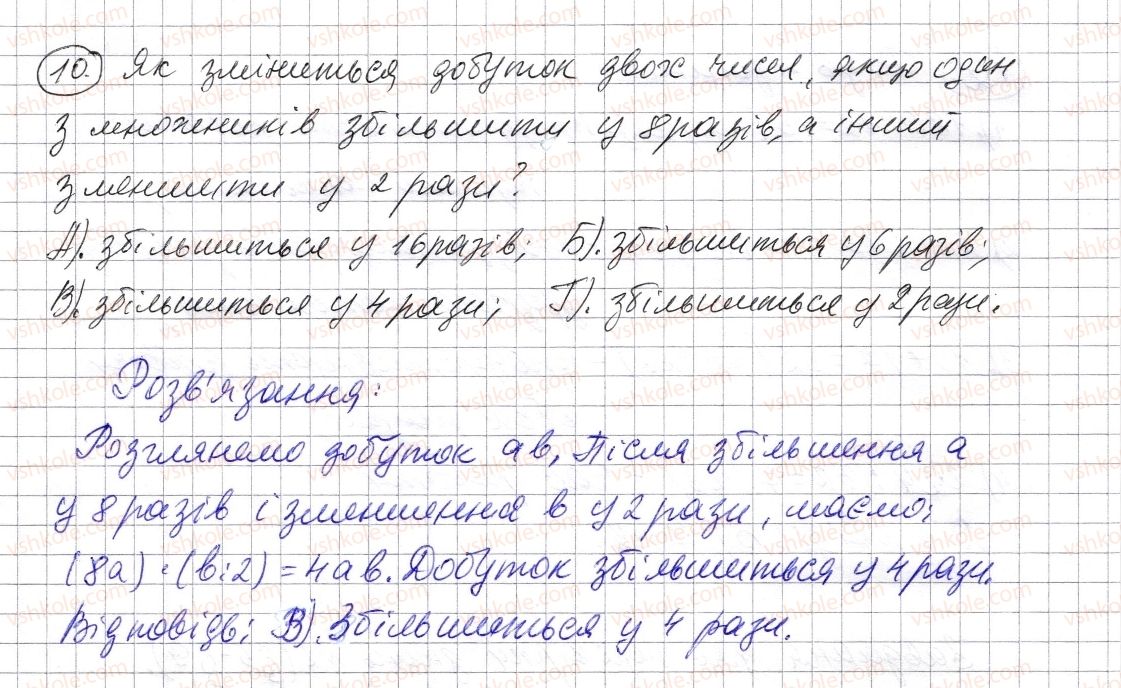 10. Як зміниться добуток двох чисел, якщо один
з множників збільшити у 8 разів, а інший
зменшити у 2 рази?
А). збільшиться у 16 разів; Б). збільшиться у 6 разів;
В). збільшиться у 4 рази; Г). збільшиться у 2 рази.
Розв'язання:
Розглянемо добуток ав, Після збільшення а
у 8 разів і зменшення в у 2 рази, маємо:
(8а) · (в:2) = 4ав. Добуток збільшиться у 4 рази.
Відповідь: В). Збільшиться у 4 рази.